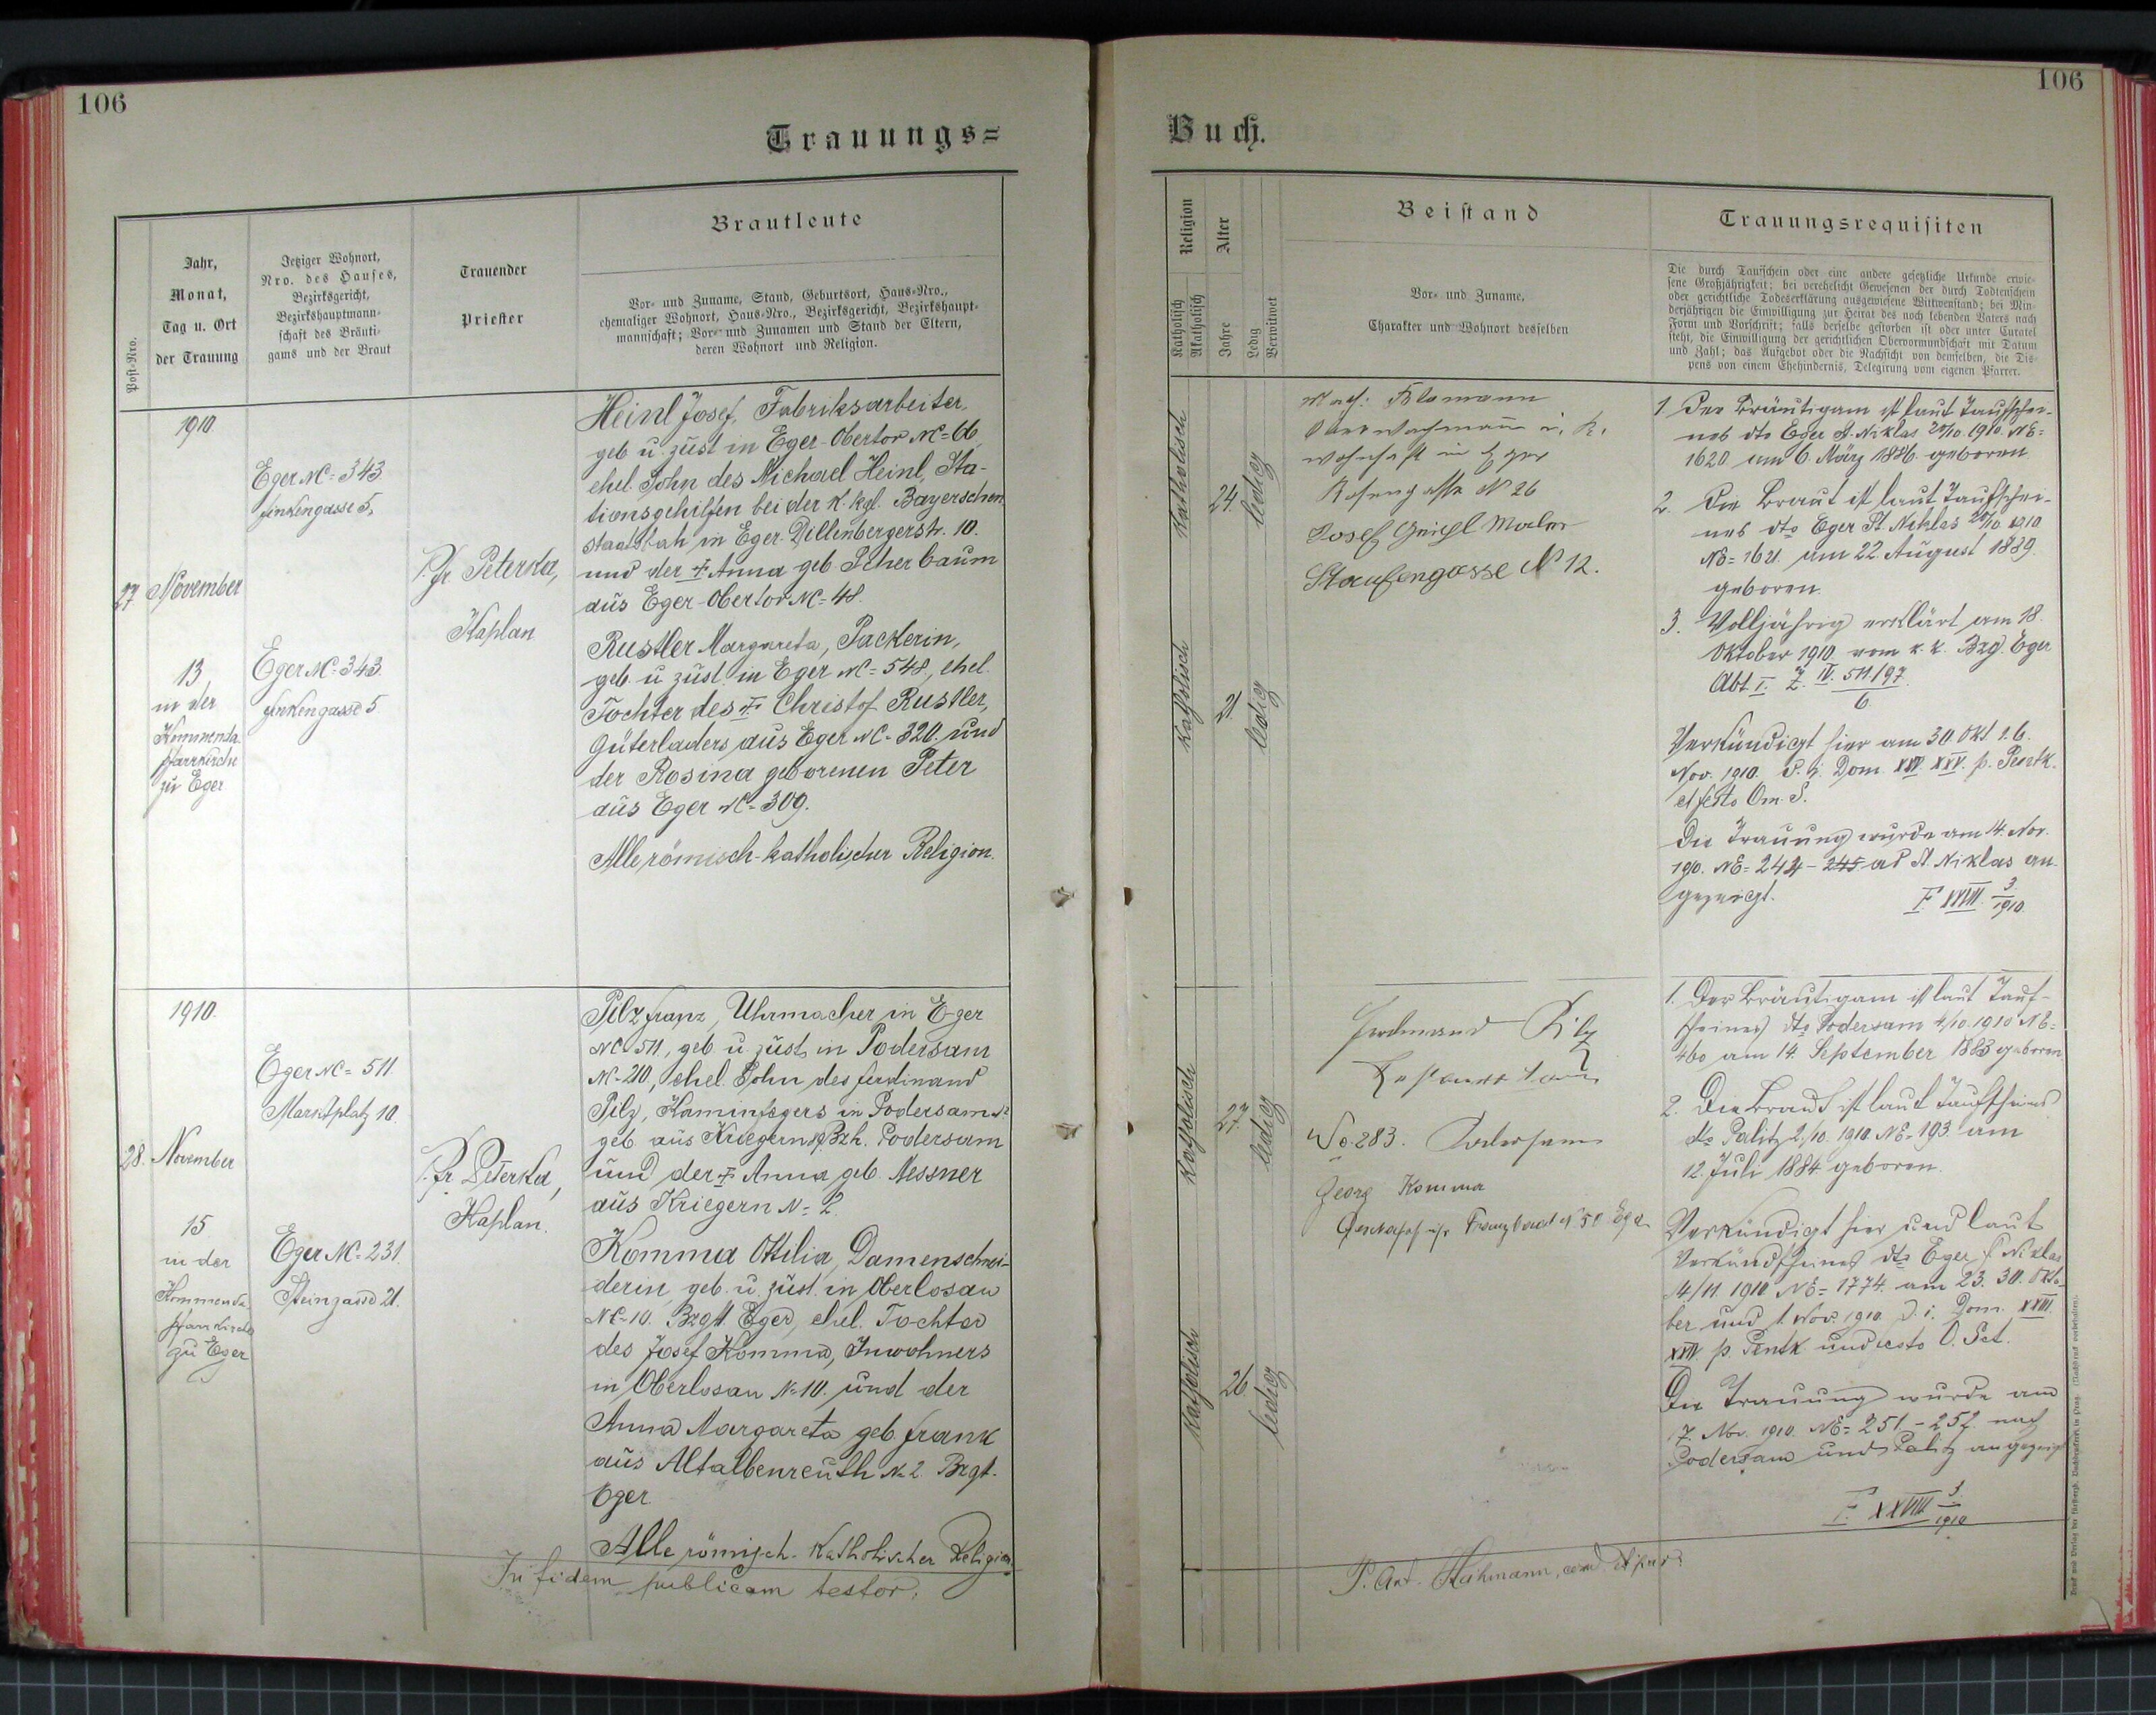 106
Trauungs=
Post-Nro.
Jahr,
Monat,
Tag u. Ort
der Trauung
Jetziger Wohnort,
Nro. des Hauses,
Bezirksgericht,
Bezirkshauptmann-
schaft des Bräuti-
gams und der Braut
Trauender
Priester
Brautleute
Vor- und Zuname, Stand, Geburtsort, Haus-Nro.,
ehemaliger Wohnort, Haus-Nro., Bezirksgericht, Bezirkshaupt-
mannschaft; Vor- und Zunamen und Stand der Eltern,
deren Wohnort und Religion.
27
1910
November
13
in der
Kommenda
pfarrkirche
zu Eger
Eger NC=343
Finkengasse 5,
Eger NC=343
Finkengasse 5
P. Fr. Peterka,
Kaplan
Heinl Josef, Fabriksarbeiter,
geb u. zust in Eger-Obertor NC=66,
ehel. Sohn des Michael Heinl, Sta-
tionsgehilfen bei der K. kgl. Bayerschen
Staatsbah in Eger Dillenbergerstr. 10.
und der † Anna geb Scherbaum
aus Eger-Obertor NC=48.
Rustler Margareta, Packerin,
geb. u zust. in Eger NC=548, ehel.
Tochter des † Christof Rustler,
Güterladers aus Eger NC=320. und
der Rosina geborenen Peter
aus Eger NC=309.
Alle römisch-katholischer Religion.
28.
1910.
November
15
in der
Kommenda
pfarrkirche
zu Eger
Eger NC=511.
Marktplatz 10.
Eger NC=231
Steingasse 21.
P. Fr. Peterka,
Kaplan.
Pilz Franz, Uhrmacher in Eger
NC 511., geb u zust in Podersam
N-210, ehel. Sohn des Ferdinand
Pilz, Kaminfegers in Podersam
geb aus Kriegern Bzh. Podersam
und der † Anna geb. Messner
aus Kriegern N=2.
Komma Ottilia, Damenschnei-
derin, geb. u. zust. in Oberlosau
NC-10. Bzgt. Eger, ehel. Tochter
des Josef Komma, Inwohners
in Oberlosau N-10. und der
Anna Margareta geb Frank
aus Altalbenreuth N-2. Bzgt.
Eger.
Alle römisch-katholischer Religion
In fidem publicam testor:
106
Buch.
Religion
Katholisch
Akatholisch
Alter
Jahre
Ledig
Verwitwet
Beistand
Vor- und Zuname,
Charakter und Wohnort desselben
Trauungsrequisiten
Die durch Taufschein oder eine andere gesetzliche Urkunde erwie-
sene Großjährigkeit; bei verehelicht Gewesenen der durch Todtenschein
oder gerichtliche Todeserklärung ausgewiesene Wittwenstand; bei Min-
derjährigen die Einwilligung zur Heirat des noch lebenden Vaters nach
Form und Vorschrift; falls derselbe gestorben ist oder unter Curatel
steht, die Einwilligung der gerichtlichen Obervormundschaft mit Datum
und Zahl; das Aufgebot oder die Nachsicht von demselben, die Dis-
pens von einem Ehehindernis, Delegirung vom eigenen Pfarrer.
Katholisch
24.
ledig
Katholisch
21
ledig
wohnhaft in Eger
Rosengasse N 26
Josef Maler
Staufengasse N 12.
1. Der Bräutigam ist laut Taufschei-
nes dto Eger St. Niklas 20/10 1910. NE=
1620 am 6. März 1886. geboren
2. Die Braut ist laut Taufschei-
nes dto Eger St. Niklas 20/10 1910
NE=1621. am 22. August 1889.
geboren.
3. Volljährig erklärt am 18.
Oktober 1910 vom k. k. Bzg. Eger
Abt I. Z. IV. 511/97
6
Verkündigt hier am 30 Okt 1. 6.
Nov. 1910. d. i. Dom. XXIV. XXV. p. Pentk.
et festo Om. S.
Die Trauung wurde am 14. Nov.
1910. NE=244-245 ad St. Niklas an-
gezeigt.
F XXVIII 3/1910
Katholisch
27.
ledig
Katholisch
26
ledig
Ferdinand Pilz
No 283. Podersam
Georg Komma
Franzensbad N 50 Eger
1. Der Bräutigam ist laut Tauf-
scheines dto Podersam 4/10. 1910 NE=
460 am 14. September 1883 geboren
2. Die Braut ist laut Taufscheines
dto Palitz 2./10. 1910. NE=193. am
12. Juli 1884 geboren.
Verkündigt hier und laut
Verkündscheines dto Eger St Niklas
14/11. 1910 NE=1774. am 23. 30. Okto-
ber und 1. Nov. 1910. d. i. Dom. XXIII.
XXIV. p. Pentk und festo O. Sct.
Die Trauung wurde am
7. Nov. 1910. NE=251-252 nach
Podersam und Palitz angezeigt
F. XXVIII 3/1910
P. Ant. Hahmann,